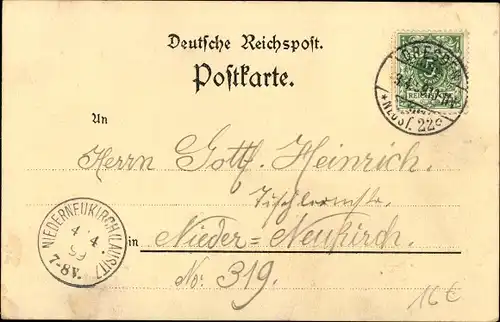 Deutsche Reichspost.
Postkarte.
DRESDEN
NEUST. 22c
5
REICHSPOST
An
Herrn Gottf. Heinrich.
Tischlermstr.
in Nieder=Neukirch.
No: 319.
NIEDERNEUKIRCH (LAUSITZ)
4 4
99
7-8V.
16€